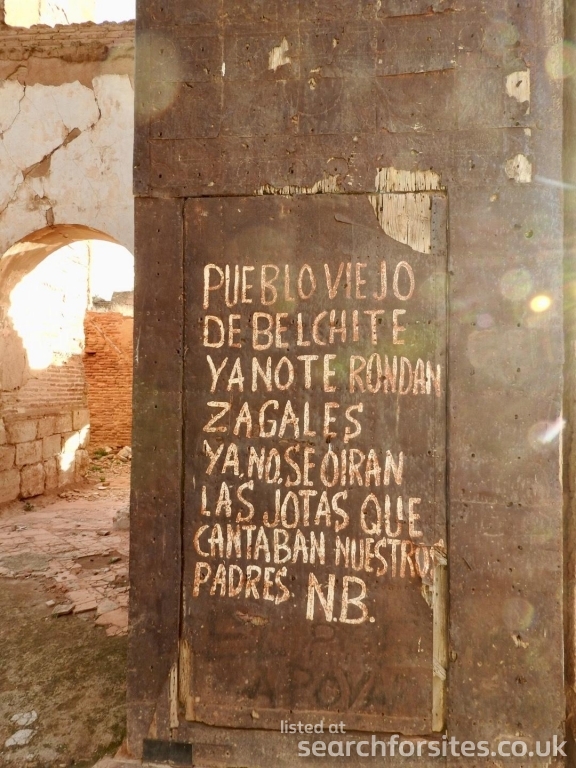 PUEBLO VIEJO
DE BELCHITE
YA NO TE RONDAN
ZAGALES
YA.NO.SE OIRAN
LAS JOTAS QUE
CANTABAN NUESTROS
PADRES. N.B.
APOYA
listed at
searchforsites.co.uk